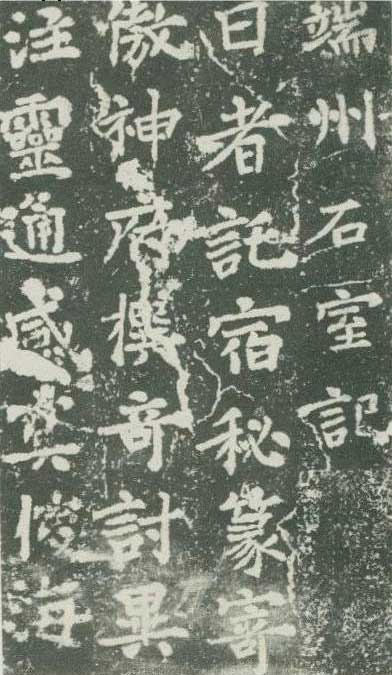 端州石室記
日者託宿秘篆寄
傲神府撰奇討異
注靈通感冥海